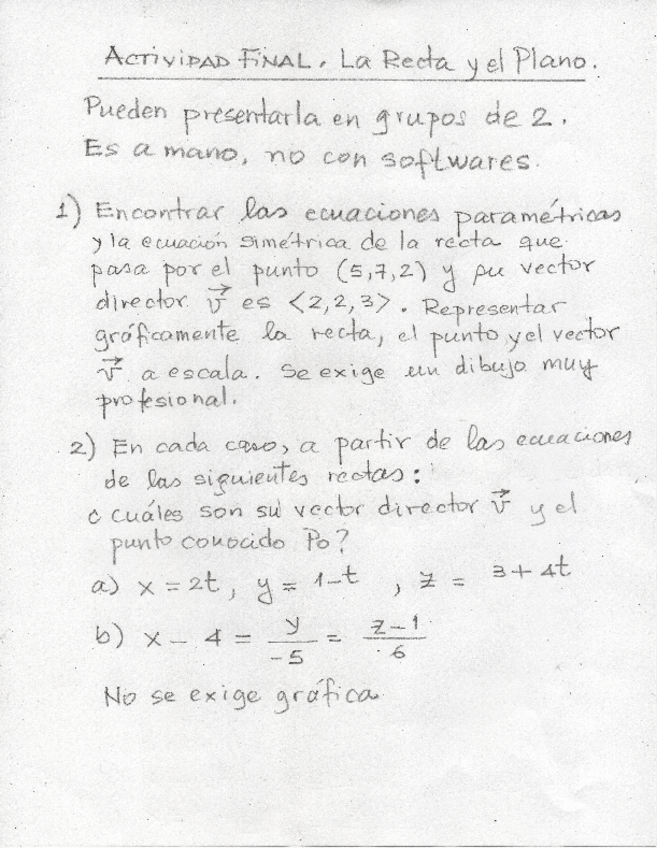 ACTIVIDAD FINAL. La Recta y el Plano.
Pueden presentarla en grupos de 2.
Es a mano, no con softwares.
1) Encontrar las ecuaciones paramétricas
y la ecuación simétrica de la recta que
pasa por el punto (5,7,2) y su vector
director v⃗ es <2,2,3>. Representar
gráficamente la recta, el punto y el vector
v⃗ a escala. Se exige un dibujo muy
profesional.
2) En cada caso, a partir de las ecuaciones
de las siguientes rectas:
¿ cuáles son su vector director v⃗ y el
punto conocido Po?
a) x = 2t, y = 1-t , z = 3+4t
b) x - 4 = y/-5 = z-1/6
No se exige gráfica